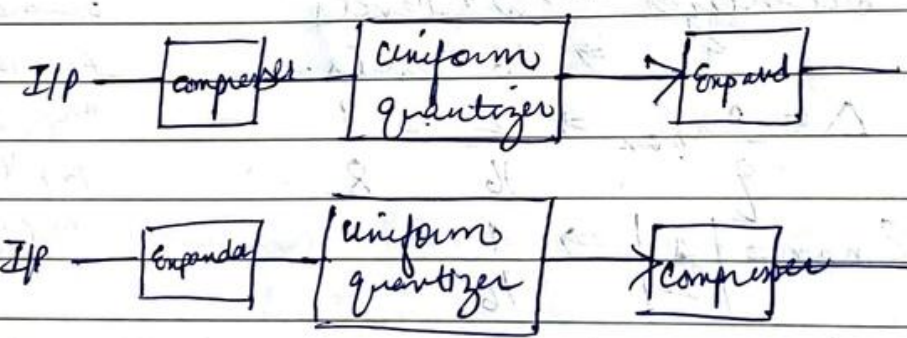 I/P compresser uniform quantizer Expand
I/P Expanda uniform quantizer compresser